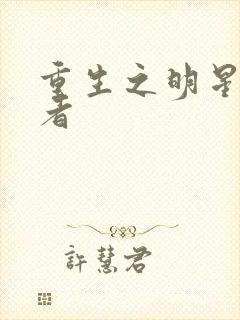 重生之明星
者
許慧君